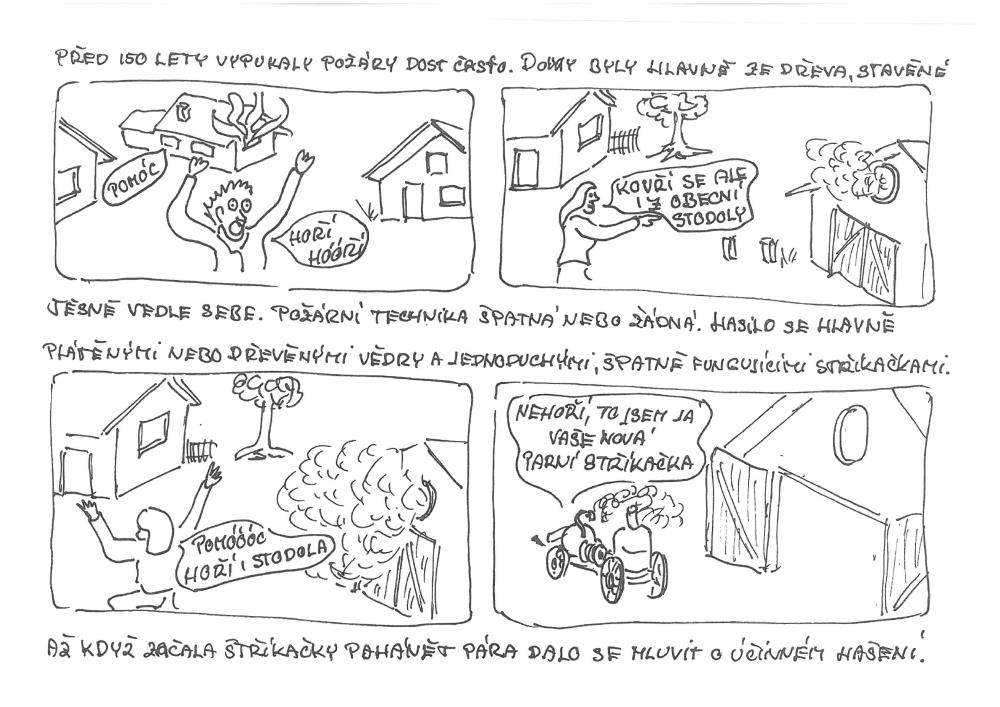 PŘED 150 LETY VYPUKALY POŽÁRY DOST ČASTO. DOMY BYLY HLAVNĚ ZE DŘEVA, STAVĚNÉ
POMÓC
HOŘÍ
HÓÓŘÍ
KOUŘÍ SE ALE
I Z OBECNÍ
STODOLY
TĚSNĚ VEDLE SEBE. POŽÁRNÍ TECHNIKA ŠPATNÁ NEBO ŽÁDNÁ. HASILO SE HLAVNĚ
PLÁTĚNÝMI NEBO DŘEVĚNÝMI VĚDRY A JEDNODUCHÝMI, ŠPATNĚ FUNGUJÍCÍMI STŘÍKAČKAMI.
POMÓÓÓC
HOŘÍ I STODOLA
NEHOŘÍ, TO JSEM JÁ
VAŠE NOVÁ
PARNÍ STŘÍKAČKA
AŽ KDYŽ ZAČALA STŘÍKAČKY POHÁNĚT PÁRA DALO SE MLUVIT O ÚČINNÉM HAŠENÍ.